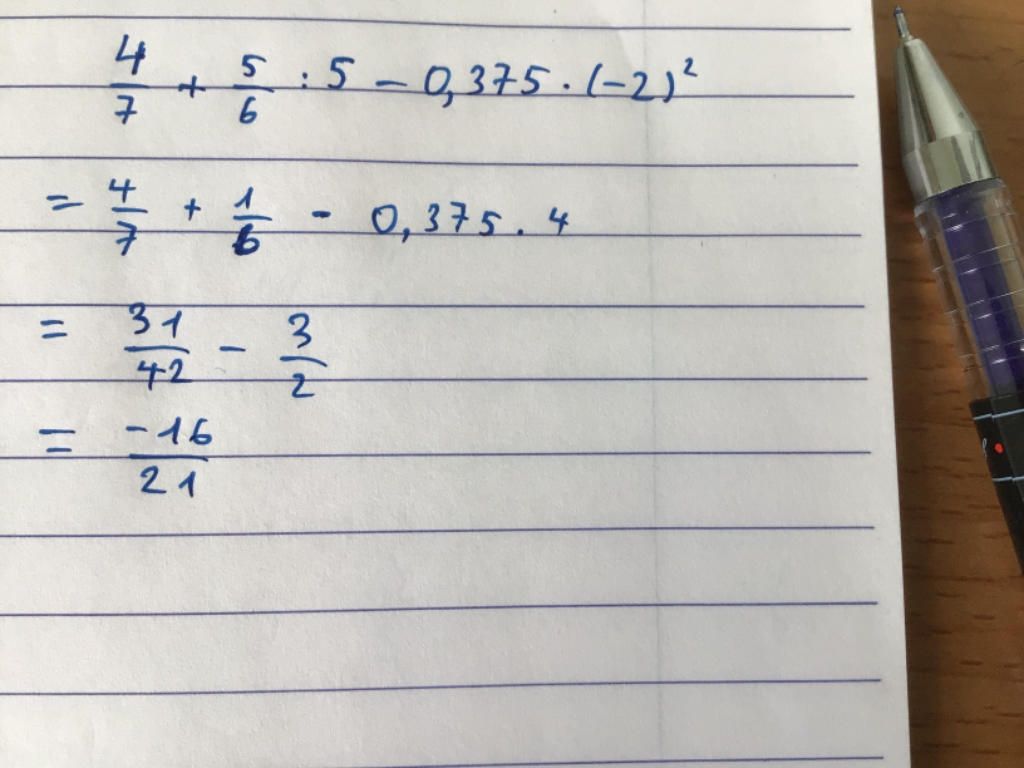 4/7 + 5/6 : 5 - 0,375 . (-2)²
= 4/7 + 1/6 - 0,375 . 4
= 31/42 - 3/2
= -16/21